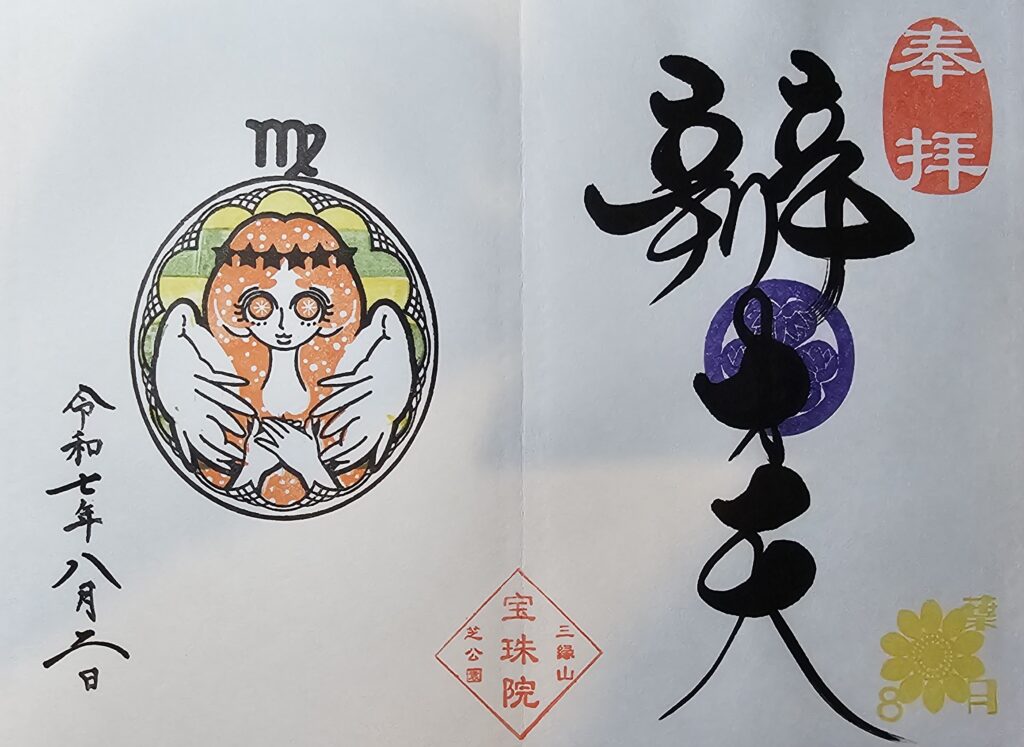 奉拝
辨才天
葉月
8
三縁山
宝珠院
芝公園
令和七年八月二日